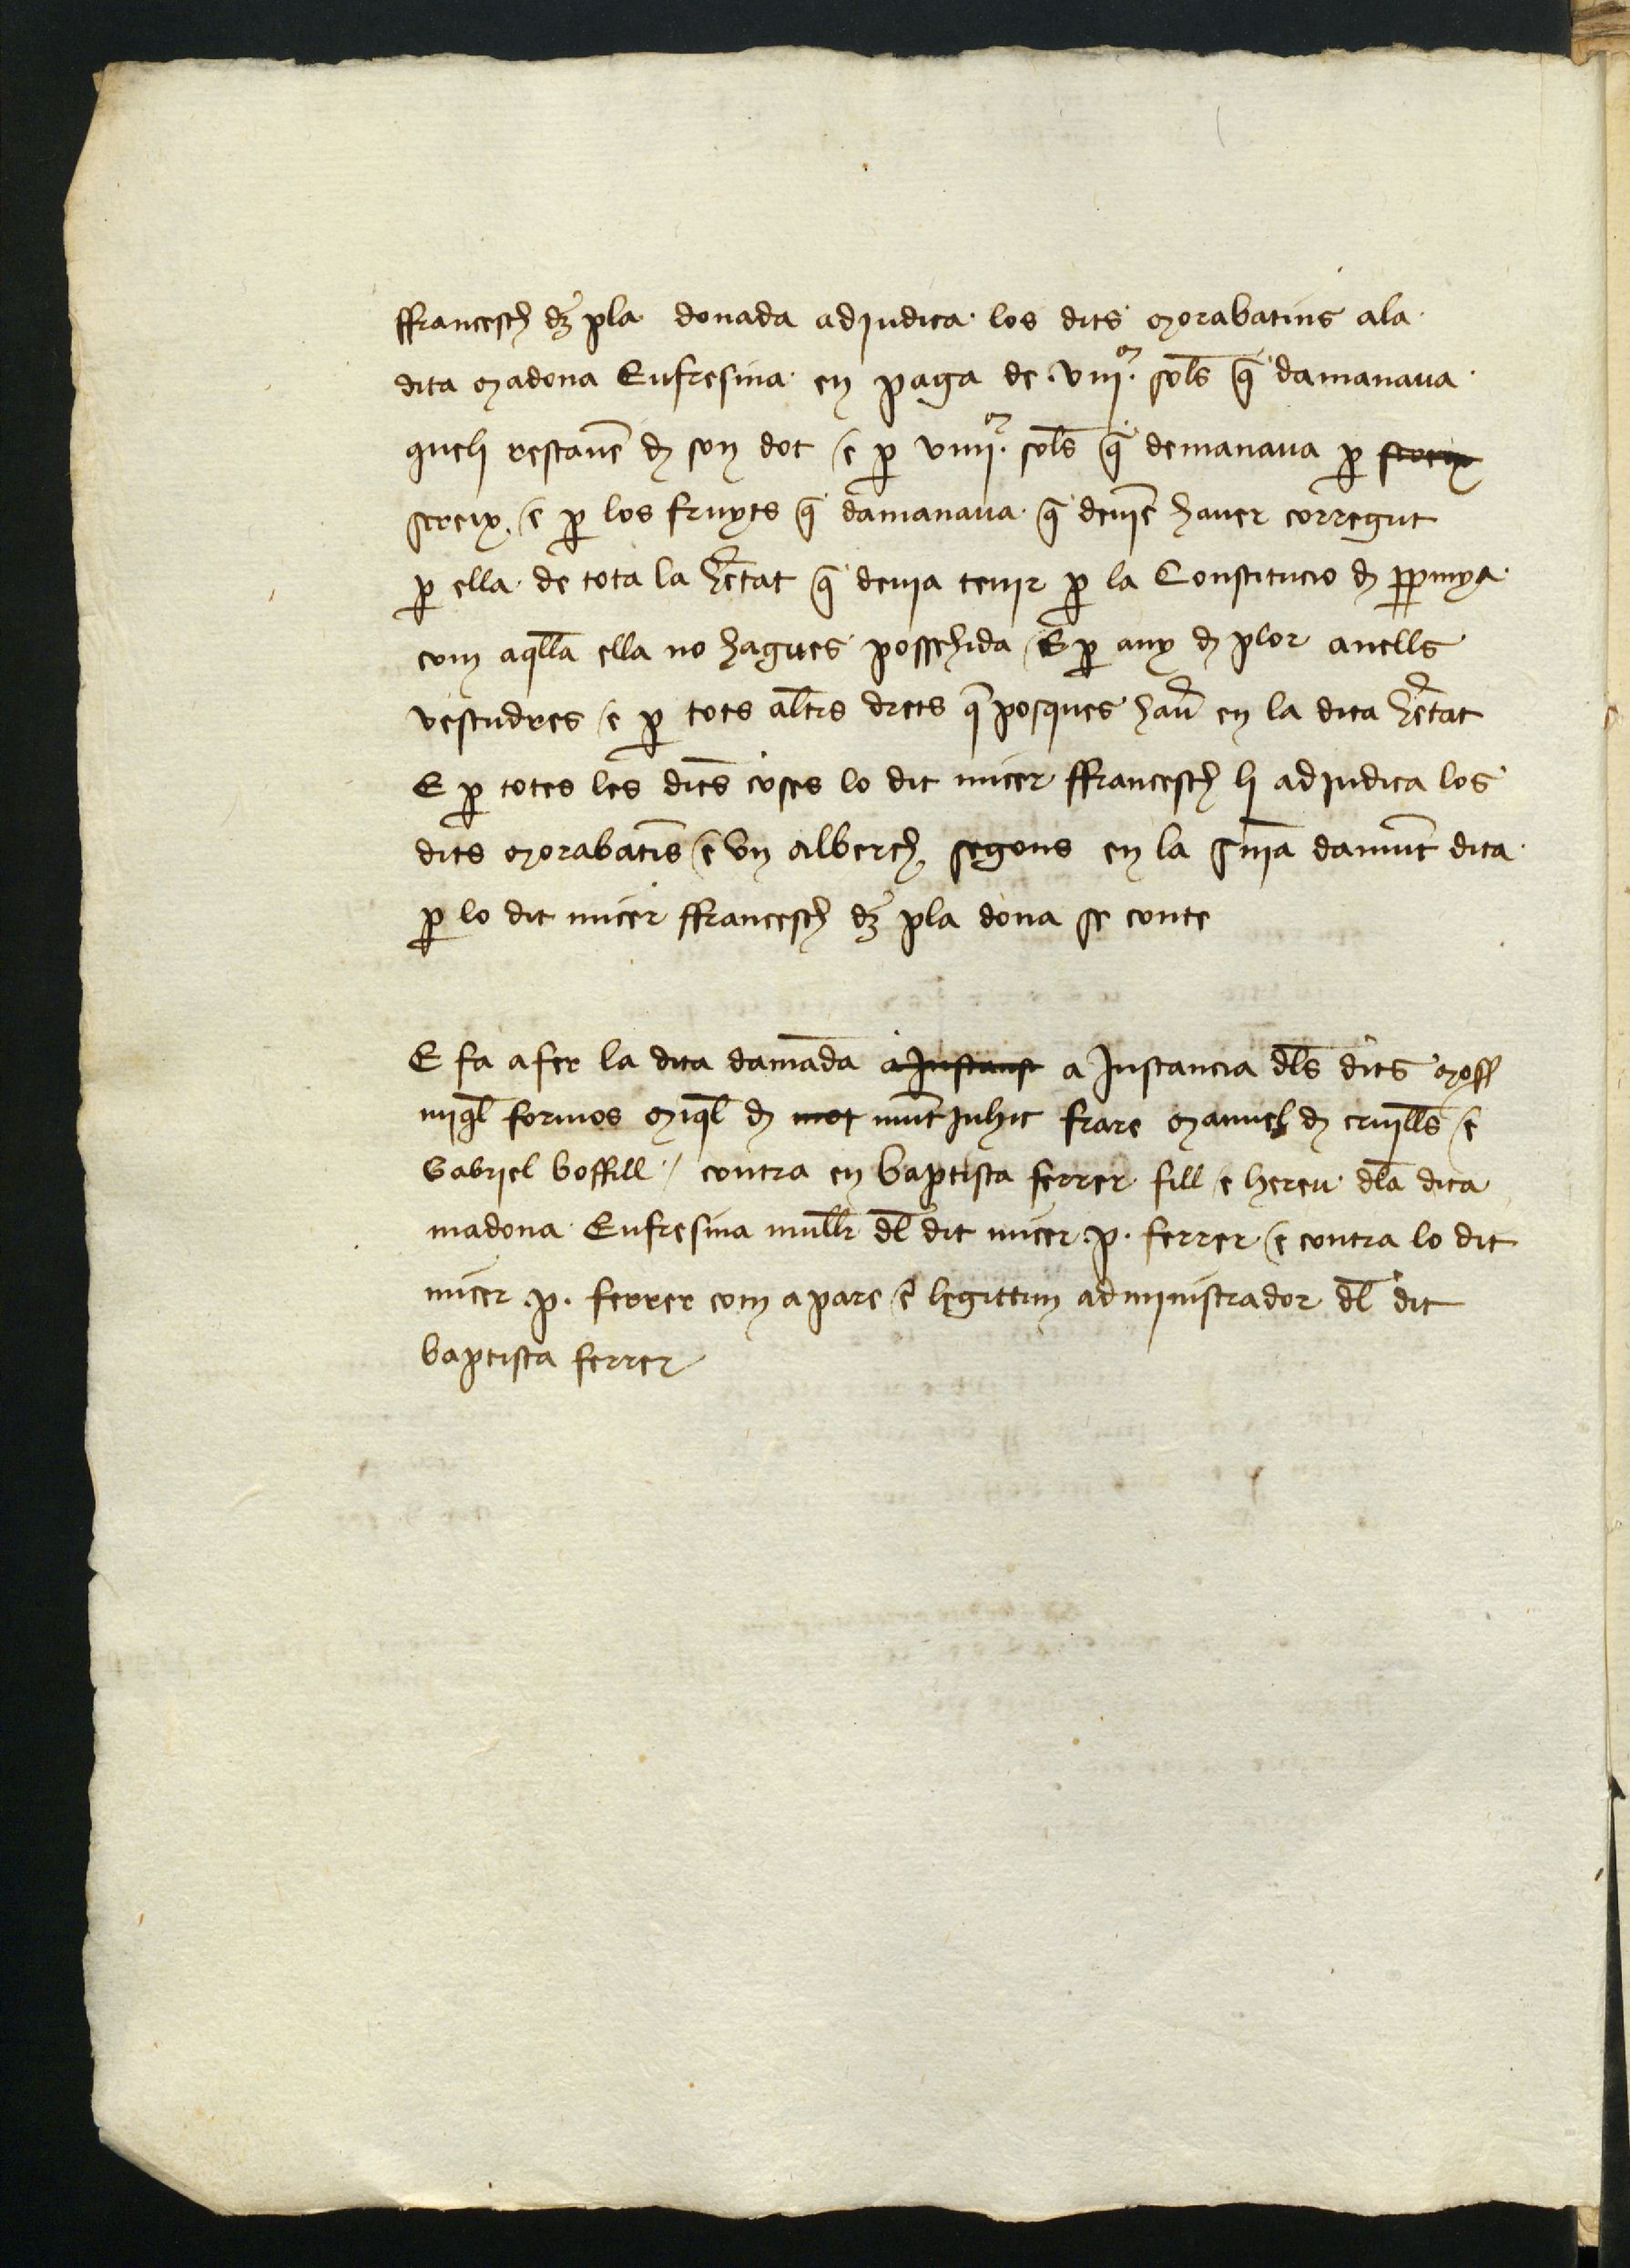 ffrancesch dez pla donada adjudica los dits morabatins ala
dita madona Eufresina en paga de .viiiᵐ. sols q̄ damanaua
queli restauē d̄ son dot e ꝑ viiiiᵐ. sols q̄ demanaua ꝑ
screix e ꝑ los fruyts q̄ damanaua q̄ deuiē hauer corregut
ꝑ ella de tota la hētat q̄ deuia tenir ꝑ la Constitucio d̄ ꝑpinya
com aqlla ella no hagues possehida E ꝑ any d̄ plor anells
vestudres e ꝑ tots altrs drets q̄ posques haū en la dita hētat
E ꝑ totes les dites coses lo dit micer ffrancesch li adjudica los
dits morabatīs e vn alberch segons en la snīa damūt dita
ꝑ lo dit micer ffrancesch dez pla dona se conte
E fa afer la dita damāda a Instancia dls dits moss
miql formos miql d̄ mūt juhic frare manuel d̄ cruills e
Gabriel boffill / contra en baptista ferrer fill e hereu dla dita
madona Eufresina mullr dl dit micer .p. ferrer e contra lo dit
micer .p. ferrer com apare e legittim administrador dl dit
baptista ferrer